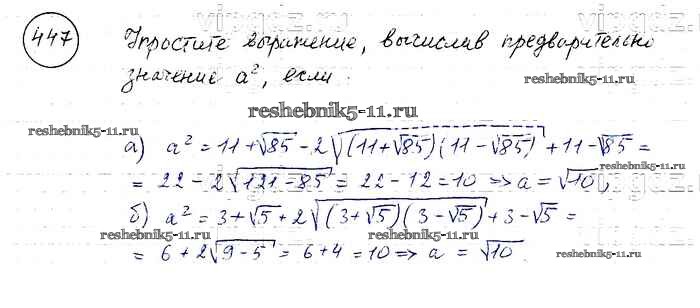 447 Упростите выражение, вычислив предварительно
значение a², если
reshebnik5-11.ru
reshebnik5-11.ru
reshebnik5-11.ru
а) a² = 11 + √85 - 2√(11+√85)(11-√85) + 11 - √85 =
reshebnik5-11.ru
= 22 - 2√121-85 = 22 - 12 = 10 => a = √10,
б) a² = 3 + √5 + 2√(3+√5)(3-√5) + 3 - √5 =
reshebnik5-11.ru
reshebnik5-11.ru
= 6 + 2√9-5 = 6 + 4 = 10 => a = √10.